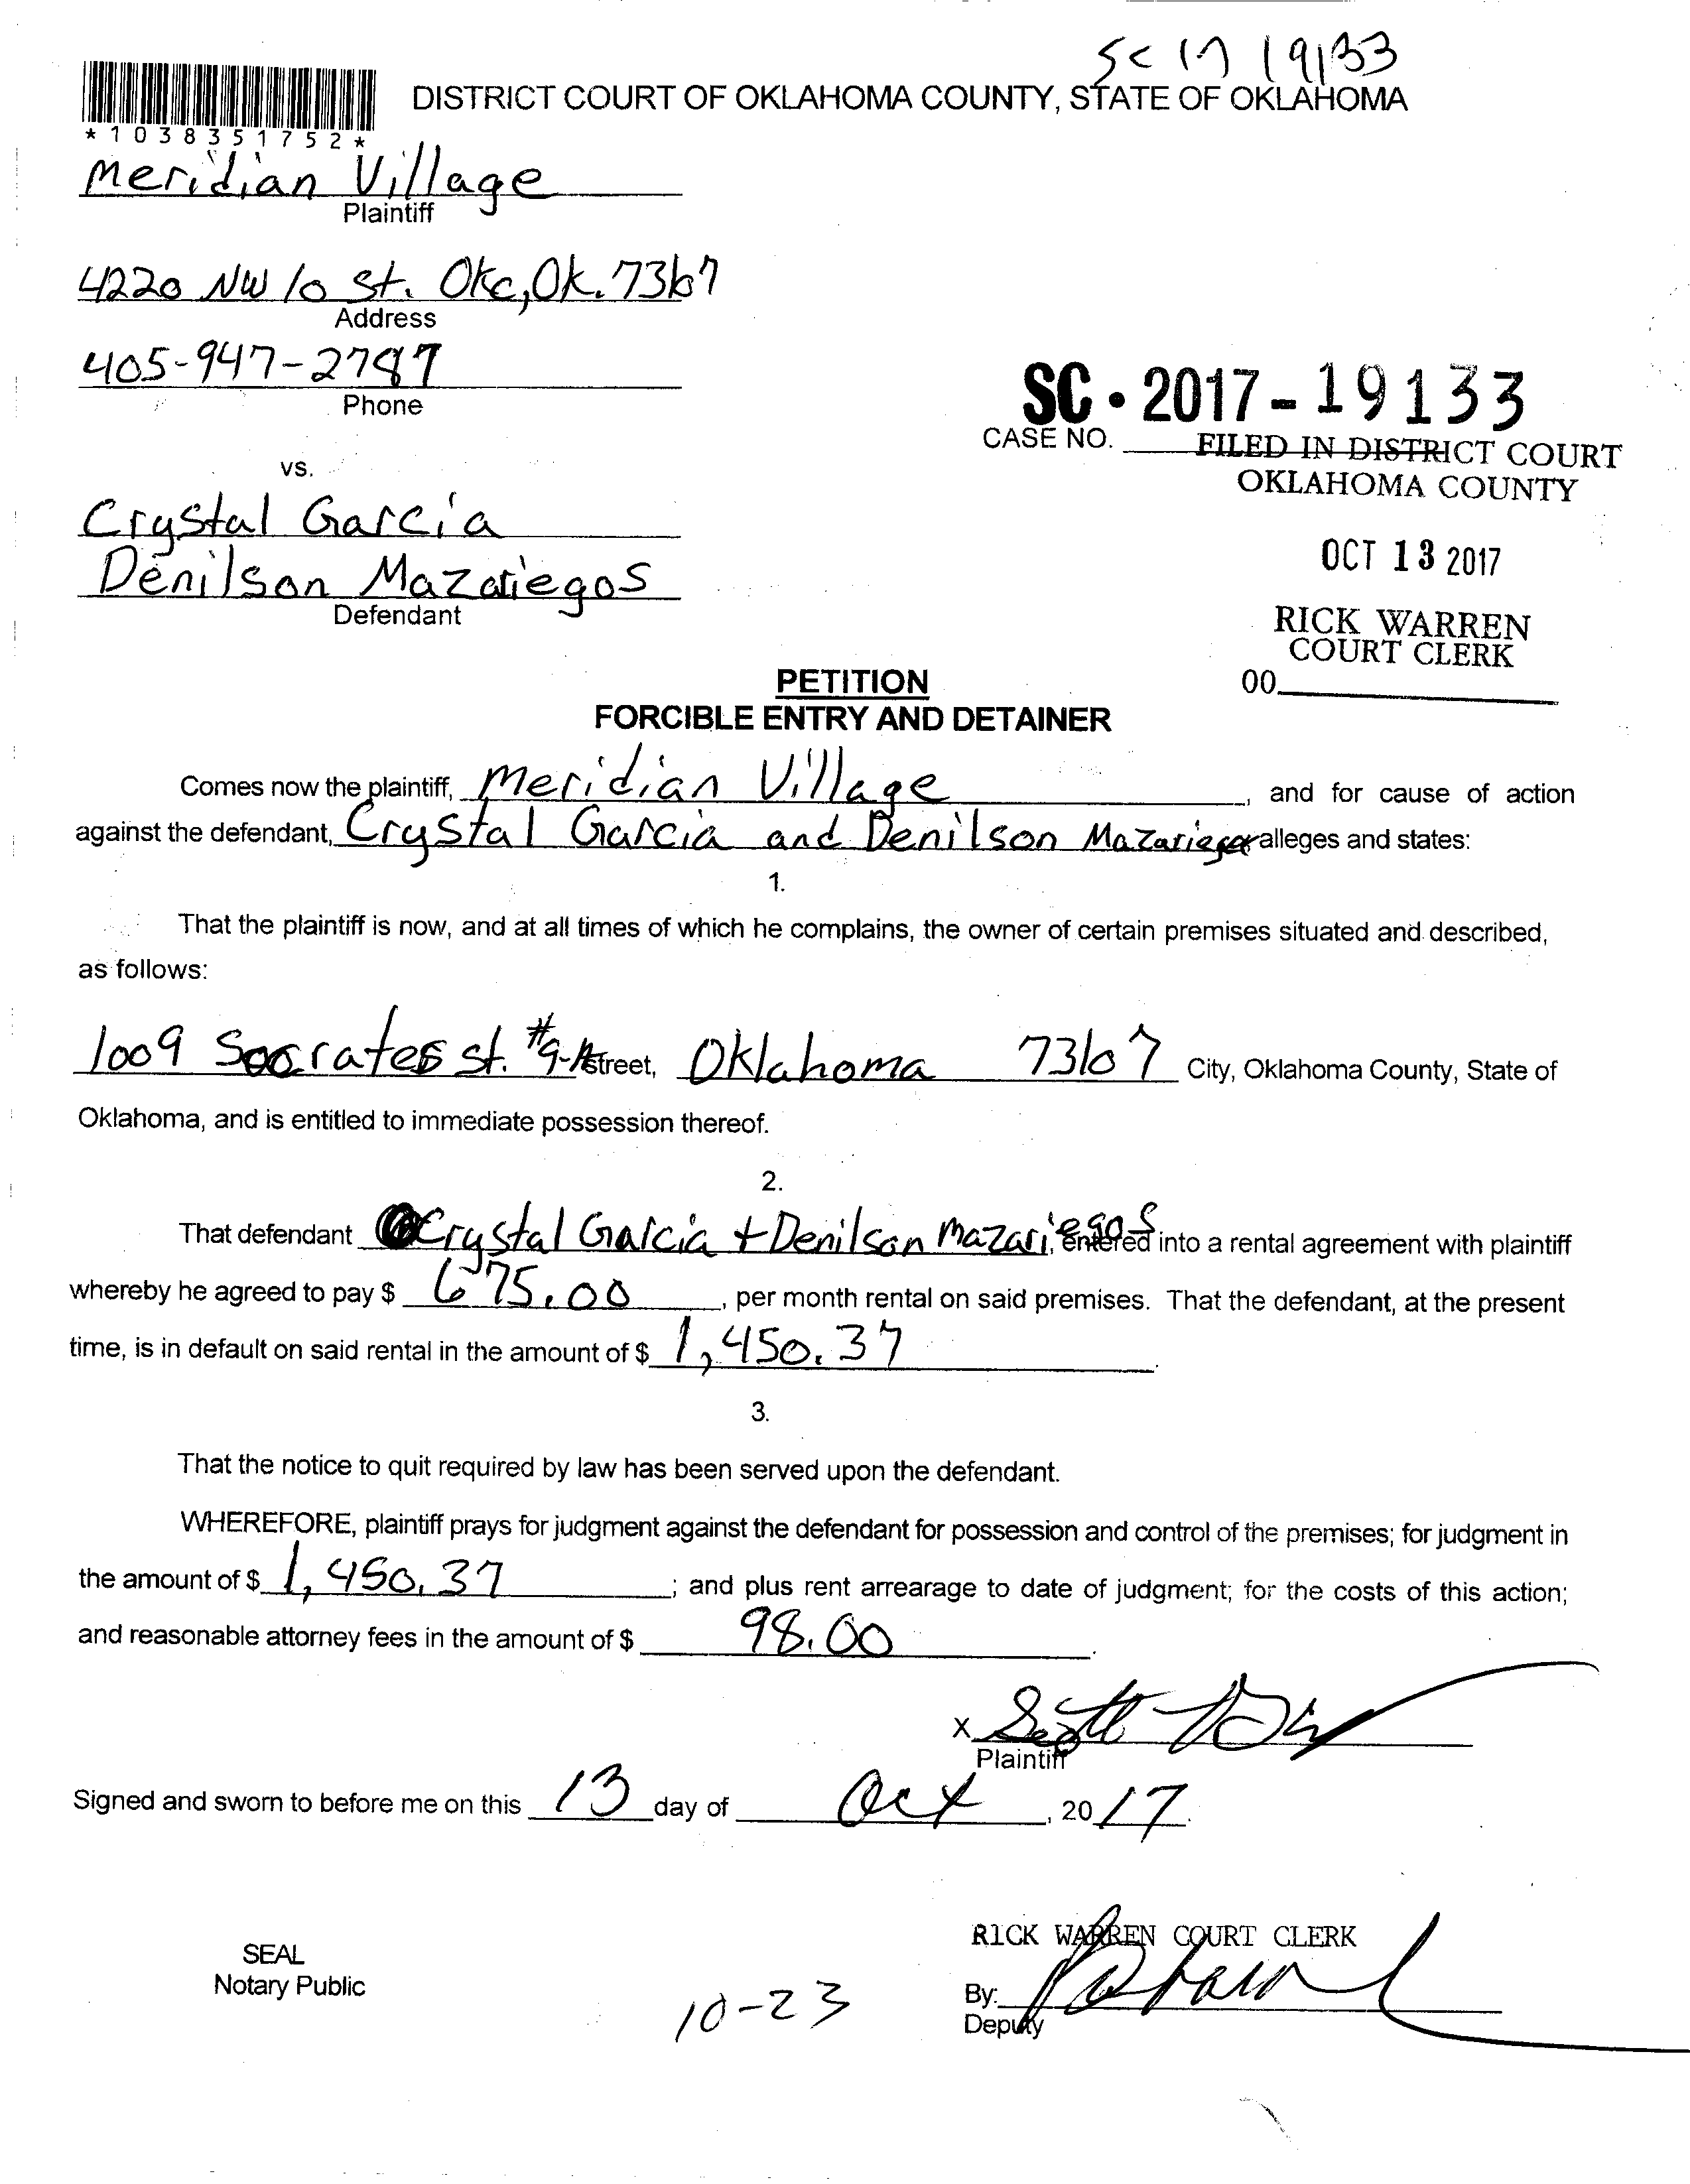 SC 17 19133
DISTRICT COURT OF OKLAHOMA COUNTY, STATE OF OKLAHOMA
*1038351752*
Meridian Village
Plaintiff
4220 NW 10 St. Okc, Ok. 73107
Address
405-947-2787
Phone
SC • 2017 - 19133
CASE NO.
FILED IN DISTRICT COURT
OKLAHOMA COUNTY
vs.
Crystal Garcia
OCT 13 2017
Denilson Mazariegos
Defendant
RICK WARREN
COURT CLERK
00
PETITION
FORCIBLE ENTRY AND DETAINER
Comes now the plaintiff, Meridian Village, and for cause of action
against the defendant, Crystal Garcia and Denilson Mazariegos alleges and states:
1.
That the plaintiff is now, and at all times of which he complains, the owner of certain premises situated and described,
as follows:
1009 Socrates st. #9-A street, Oklahoma 73107 City, Oklahoma County, State of
Oklahoma, and is entitled to immediate possession thereof.
2.
That defendant Crystal Garcia + Denilson Mazariegos, entered into a rental agreement with plaintiff
whereby he agreed to pay $ 675.00, per month rental on said premises. That the defendant, at the present
time, is in default on said rental in the amount of $ 1,450.37.
3.
That the notice to quit required by law has been served upon the defendant.
WHEREFORE, plaintiff prays for judgment against the defendant for possession and control of the premises; for judgment in
the amount of $ 1,450.37; and plus rent arrearage to date of judgment; for the costs of this action;
and reasonable attorney fees in the amount of $ 98.00.
X Scott
Plaintiff
Signed and sworn to before me on this 13 day of Oct, 2017.
RICK WARREN COURT CLERK
SEAL
Notary Public
10-23
By:
Deputy